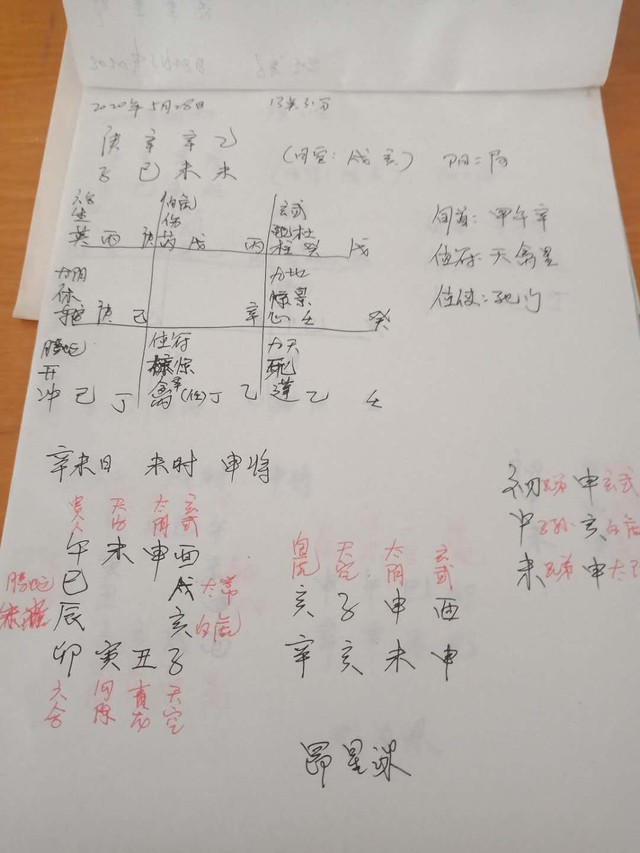 2020年5月28日 13点31分
庚 辛 辛 乙
子 巳 未 未 (旬空:戌亥) 阳二局
六合 白虎 玄武
生 伤 杜
英 丙 庚 芮 戊 丙 柱 癸 戊
旬首:甲午辛
值符:天禽星
值使:死门
太阴 九地
休 惊 景
庚 己 辛 心 壬 癸
腾蛇 值符 九天
开 惊 死
冲 己 丁 禽 (任) 丁 乙 蓬 乙 壬
辛未日 未时 申将
贵人 太阴 玄武
午 未 申 酉
腾蛇 巳 戌 太常
朱雀 辰 亥 白虎
卯 寅 丑 子
六合 青龙 天空
白虎 天空 太阴 玄武
亥 子 申 酉
辛 亥 未 申
初 兄弟 申 玄武
中 子孙 亥 白虎
末 兄弟 申
昴星课